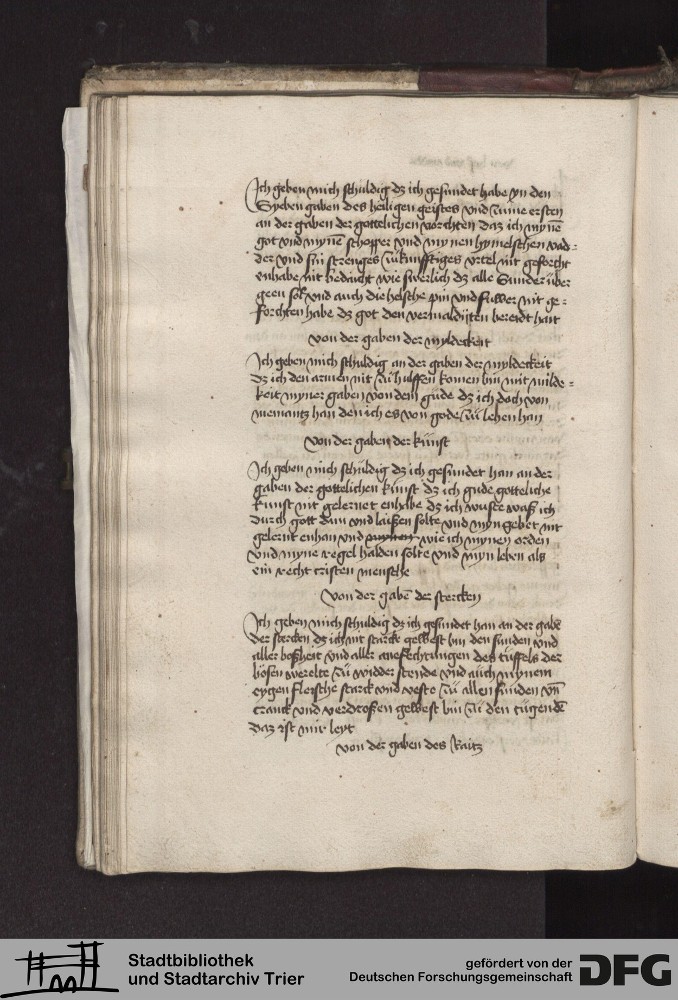 Ich geben mich schuldig dz ich gesundet habe yn den
Syeben gaben des heiligen geistes vnd zume ersten
an der gaben der gottelichen vorchten daz ich myne̅
got vnd myne̅ schopper vnd mynen hymelschen vad=
der vnd sin strenges zukunfftiges vrtel nit geforcht
enhabe nit bedacht wie swerlich dz alle Sunder uber
geen sol vnd auch die helsche pin vnd fuwer nit ge=
forchten habe dz got den vermaldijten bereidt hait
von der gaben der myldeckeit
Ich geben mich schuldig an der gaben der myldeckeit
dz ich den armen nit zu hulffen komen bin mit milde=
keit myner gaben von dem gude dz ich doch von
niemantz han den ich es von gode zu lehen han
von der gaben der kunst
Ich geben mich schuldig dz ich gesundet han an der
gaben der gottelichen kunst dz ich gude gotteliche
kunst nit gelernet enhabe dz ich wuste waß ich
durch gott dun vnd laißen solte vnd myn gebet nit
gelernt enhan vnd wie ich mynen orden
vnd myne regel halden solte vnd myn leben als
ein recht cristen mensche
von der gabe̅ der stercken
Ich geben mich schuldig dz ich gesundet han an der gabe̅
der stercken dz ich nit starck gewest bin den sunden vnd
aller boßheit vnd aller anefechtungen des tuffels der
bosen werelte zu widder stende vnd auch mynem
eygen fleische starck vnd veste zu allen sunden vn̅
cranck vnd verdroßen gewest bin zu den tugende̅
daz ist mir leyt
von der gaben des Raitz
Stadtbibliothek
und Stadtarchiv Trier
gefördert von der
Deutschen Forschungsgemeinschaft
DFG